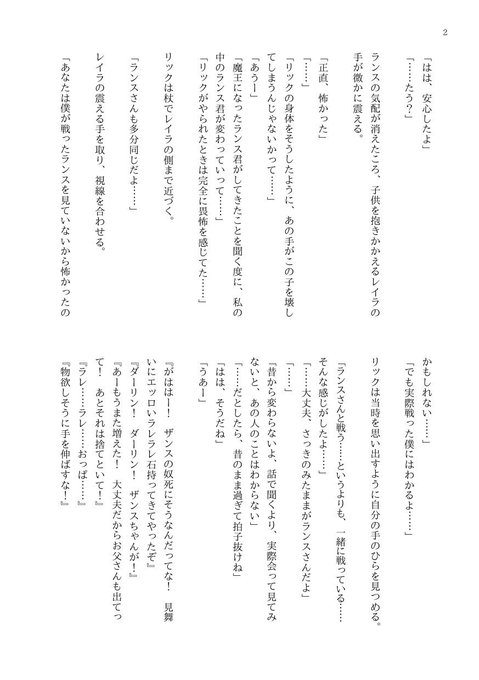 2
「はは、安心したよ」
「……たう？」
ランスの気配が消えたころ、子供を抱きかかえるレイラの
手が微かに震える。
「正直、怖かった」
「……」
「リックの身体をそうしたように、あの手がこの子を壊し
てしまうんじゃないかって……」
「あうー」
「魔王になったランス君がしてきたことを聞く度に、私の
中のランス君が変わっていって……」
「リックがやられたときは完全に畏怖を感じてた……」
リックは杖でレイラの側まで近づく。
「ランスさんも多分同じだよ……」
レイラの震える手を取り、視線を合わせる。
「あなたは僕が戦ったランスを見ていないから怖かったの
かもしれない……」
「でも実際戦った僕にはわかるよ……」
リックは当時を思い出すように自分の手のひらを見つめる。
「ランスさんと戦う……というよりも、一緒に戦っている……
そんな感じがしたよ……」
「……大丈夫、さっきのみたままがランスさんだよ」
「……」
「昔から変わらないよ、話で聞くより、実際会って見てみ
ないと、あの人のことはわからない」
「……だとしたら、昔のまま過ぎて拍子抜けね」
「はは、そうだね」
「うあー」
『がはは！　ザンスの奴死にそうなんだってな！　見舞
いにエッロいラレラレ石持ってきてやったぞ』
『ダーリン！　ダーリン！　ザンスちゃんが！』
『あーもうまた増えた！　大丈夫だからお父さんも出てっ
て！　あとそれは捨てといて！』
『ラレ……ラレ……おっぱ……』
『物欲しそうに手を伸ばすな！』